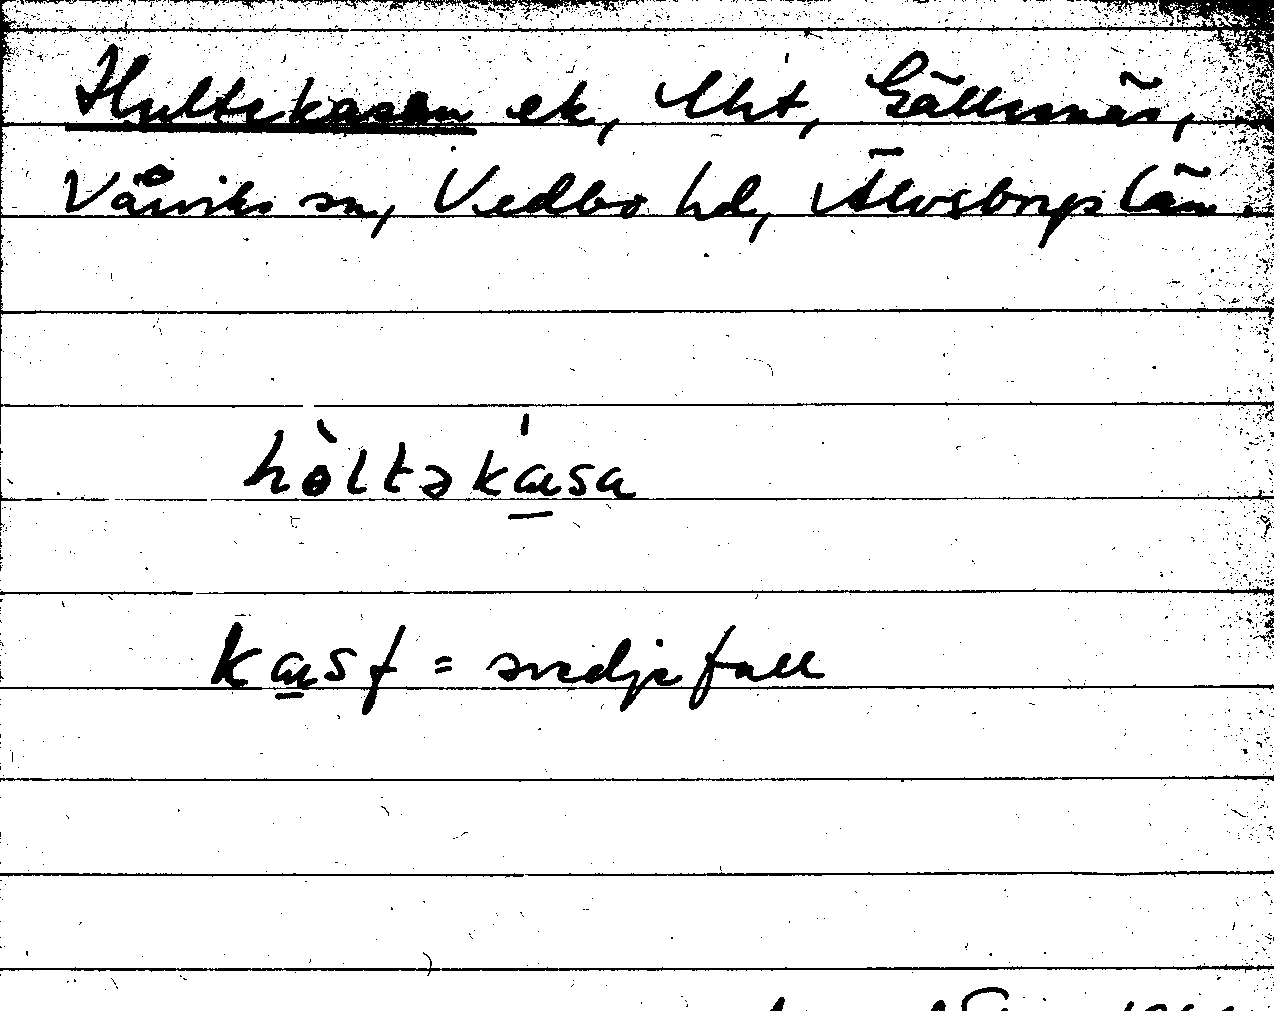 Hultekasen ek, Uht, Gällsnäs,
Vårviks sn, Vedbo hd, Älvsborgs län.
hòltəkása
kasf = svedjefall